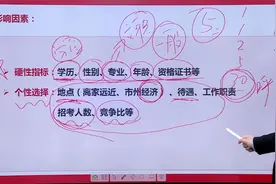 影响因素：
硬性指标：学历、性别、专业、年龄、资格证书等
个性选择：地点（离家远近、市州经济）、待遇、工作职责
招考人数、竞争比等
5
1
1
2
5
30